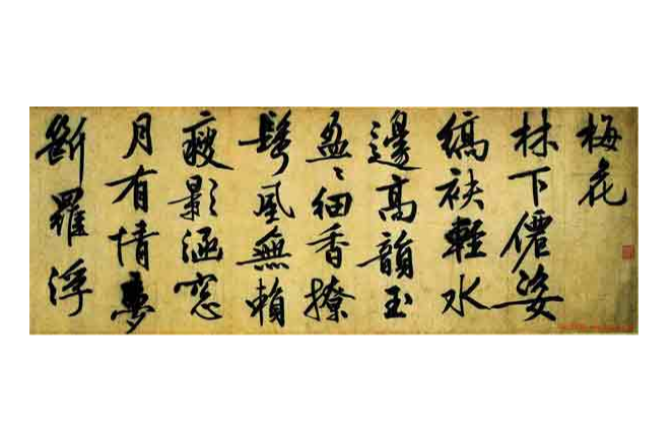 梅花
林下僊姿
縞袂輕水
邊高韻玉
盈盈細香撩
鬂風無賴
瘦影涵窓
月有情夢
斷羅浮